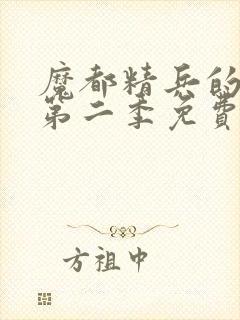 魔都精兵的
第二季免費
方祖中